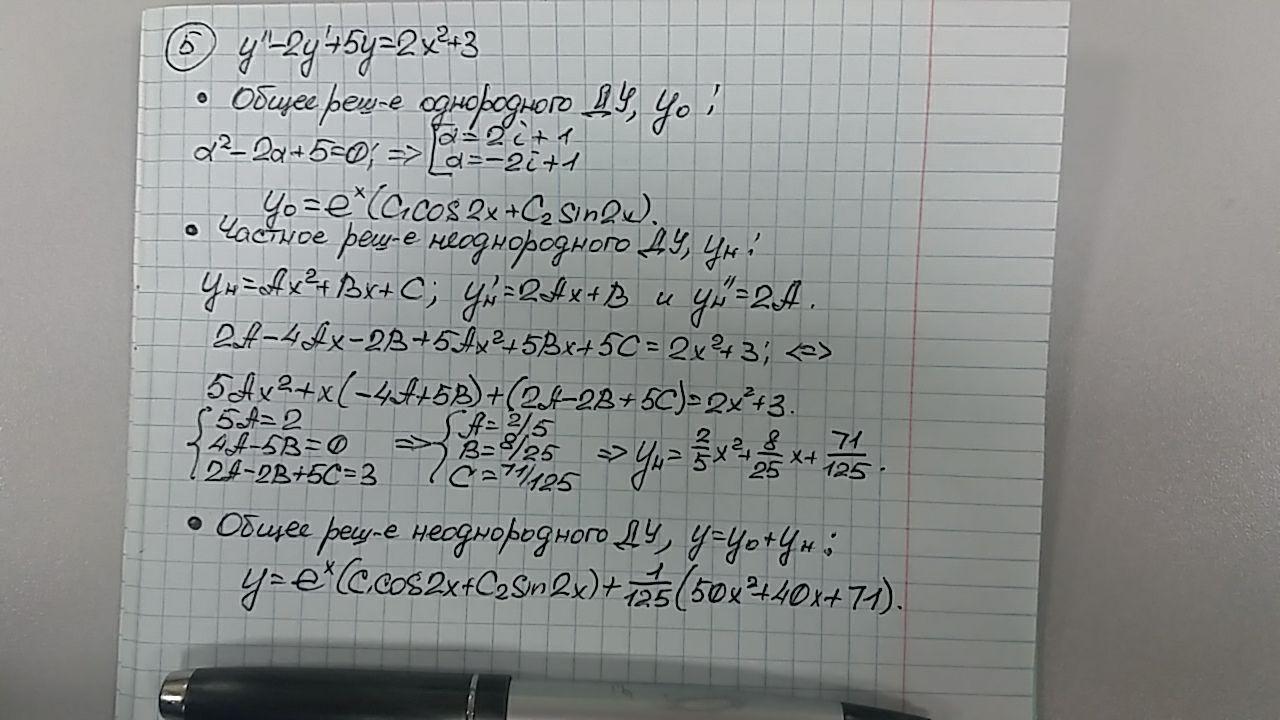 5 y''-2y'+5y=2x²+3
• Общее реш-е однородного ДУ, y₀:
α²-2α+5=0; => [α=2i+1
α=-2i+1
y₀=eˣ(C₁cos2x+C₂sin2x).
• Частное реш-е неоднородного ДУ, yн:
yн=Ax²+Bx+C; yн'=2Ax+B и yн''=2A.
2A-4Ax-2B+5Ax²+5Bx+5C=2x²+3; <=>
5Ax²+x(-4A+5B)+(2A-2B+5C)=2x²+3.
{5A=2
4A-5B=0
2A-2B+5C=3 => {A=2/5
B=8/25
C=71/125 => yн=2/5x²+8/25x+71/125.
• Общее реш-е неоднородного ДУ, y=y₀+yн:
y=eˣ(C₁cos2x+C₂sin2x)+1/125(50x²+40x+71).